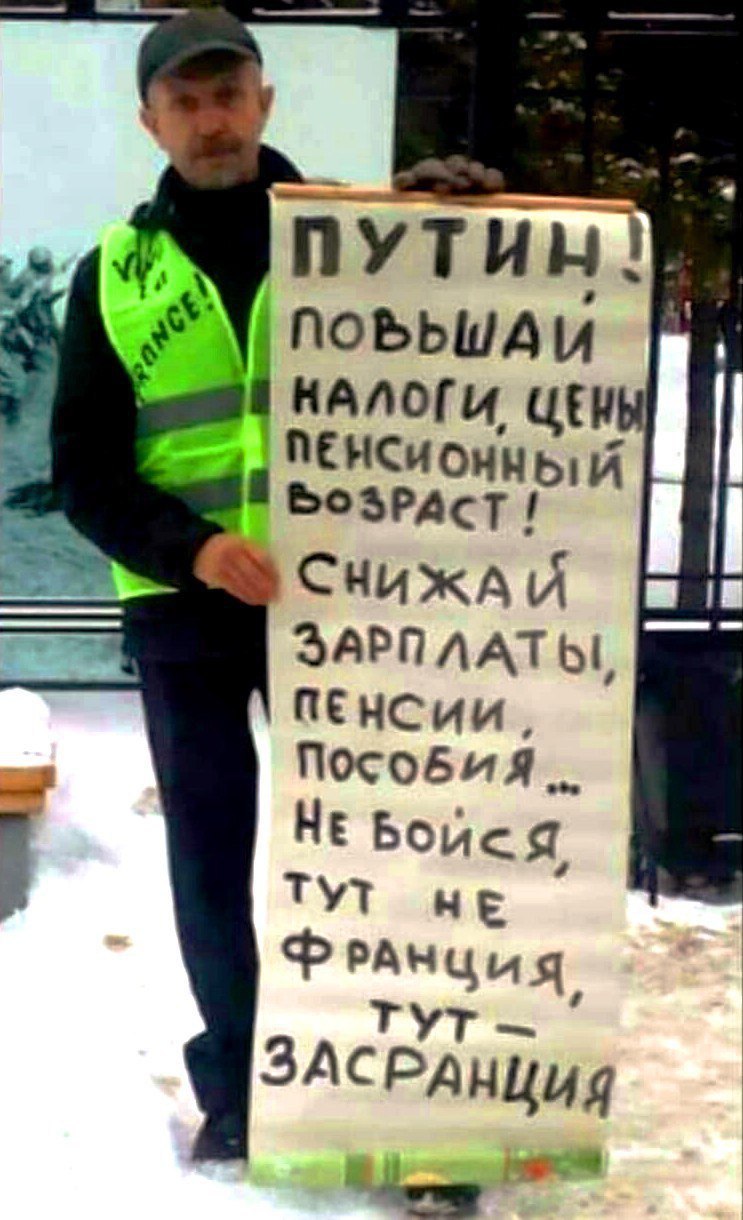 FRANCE!
ПУТИН!
ПОВЬШАЙ
НАЛОГИ, ЦЕНЫ
ПЕНСИОННЫЙ
ВОЗРАСТ!
СНИЖАЙ
ЗАРПЛАТЫ,
ПЕНСИИ,
ПОСОБИЯ...
НЕ БОЙСЯ,
ТУТ НЕ
ФРАНЦИЯ,
ТУТ –
ЗАСРАНЦИЯ